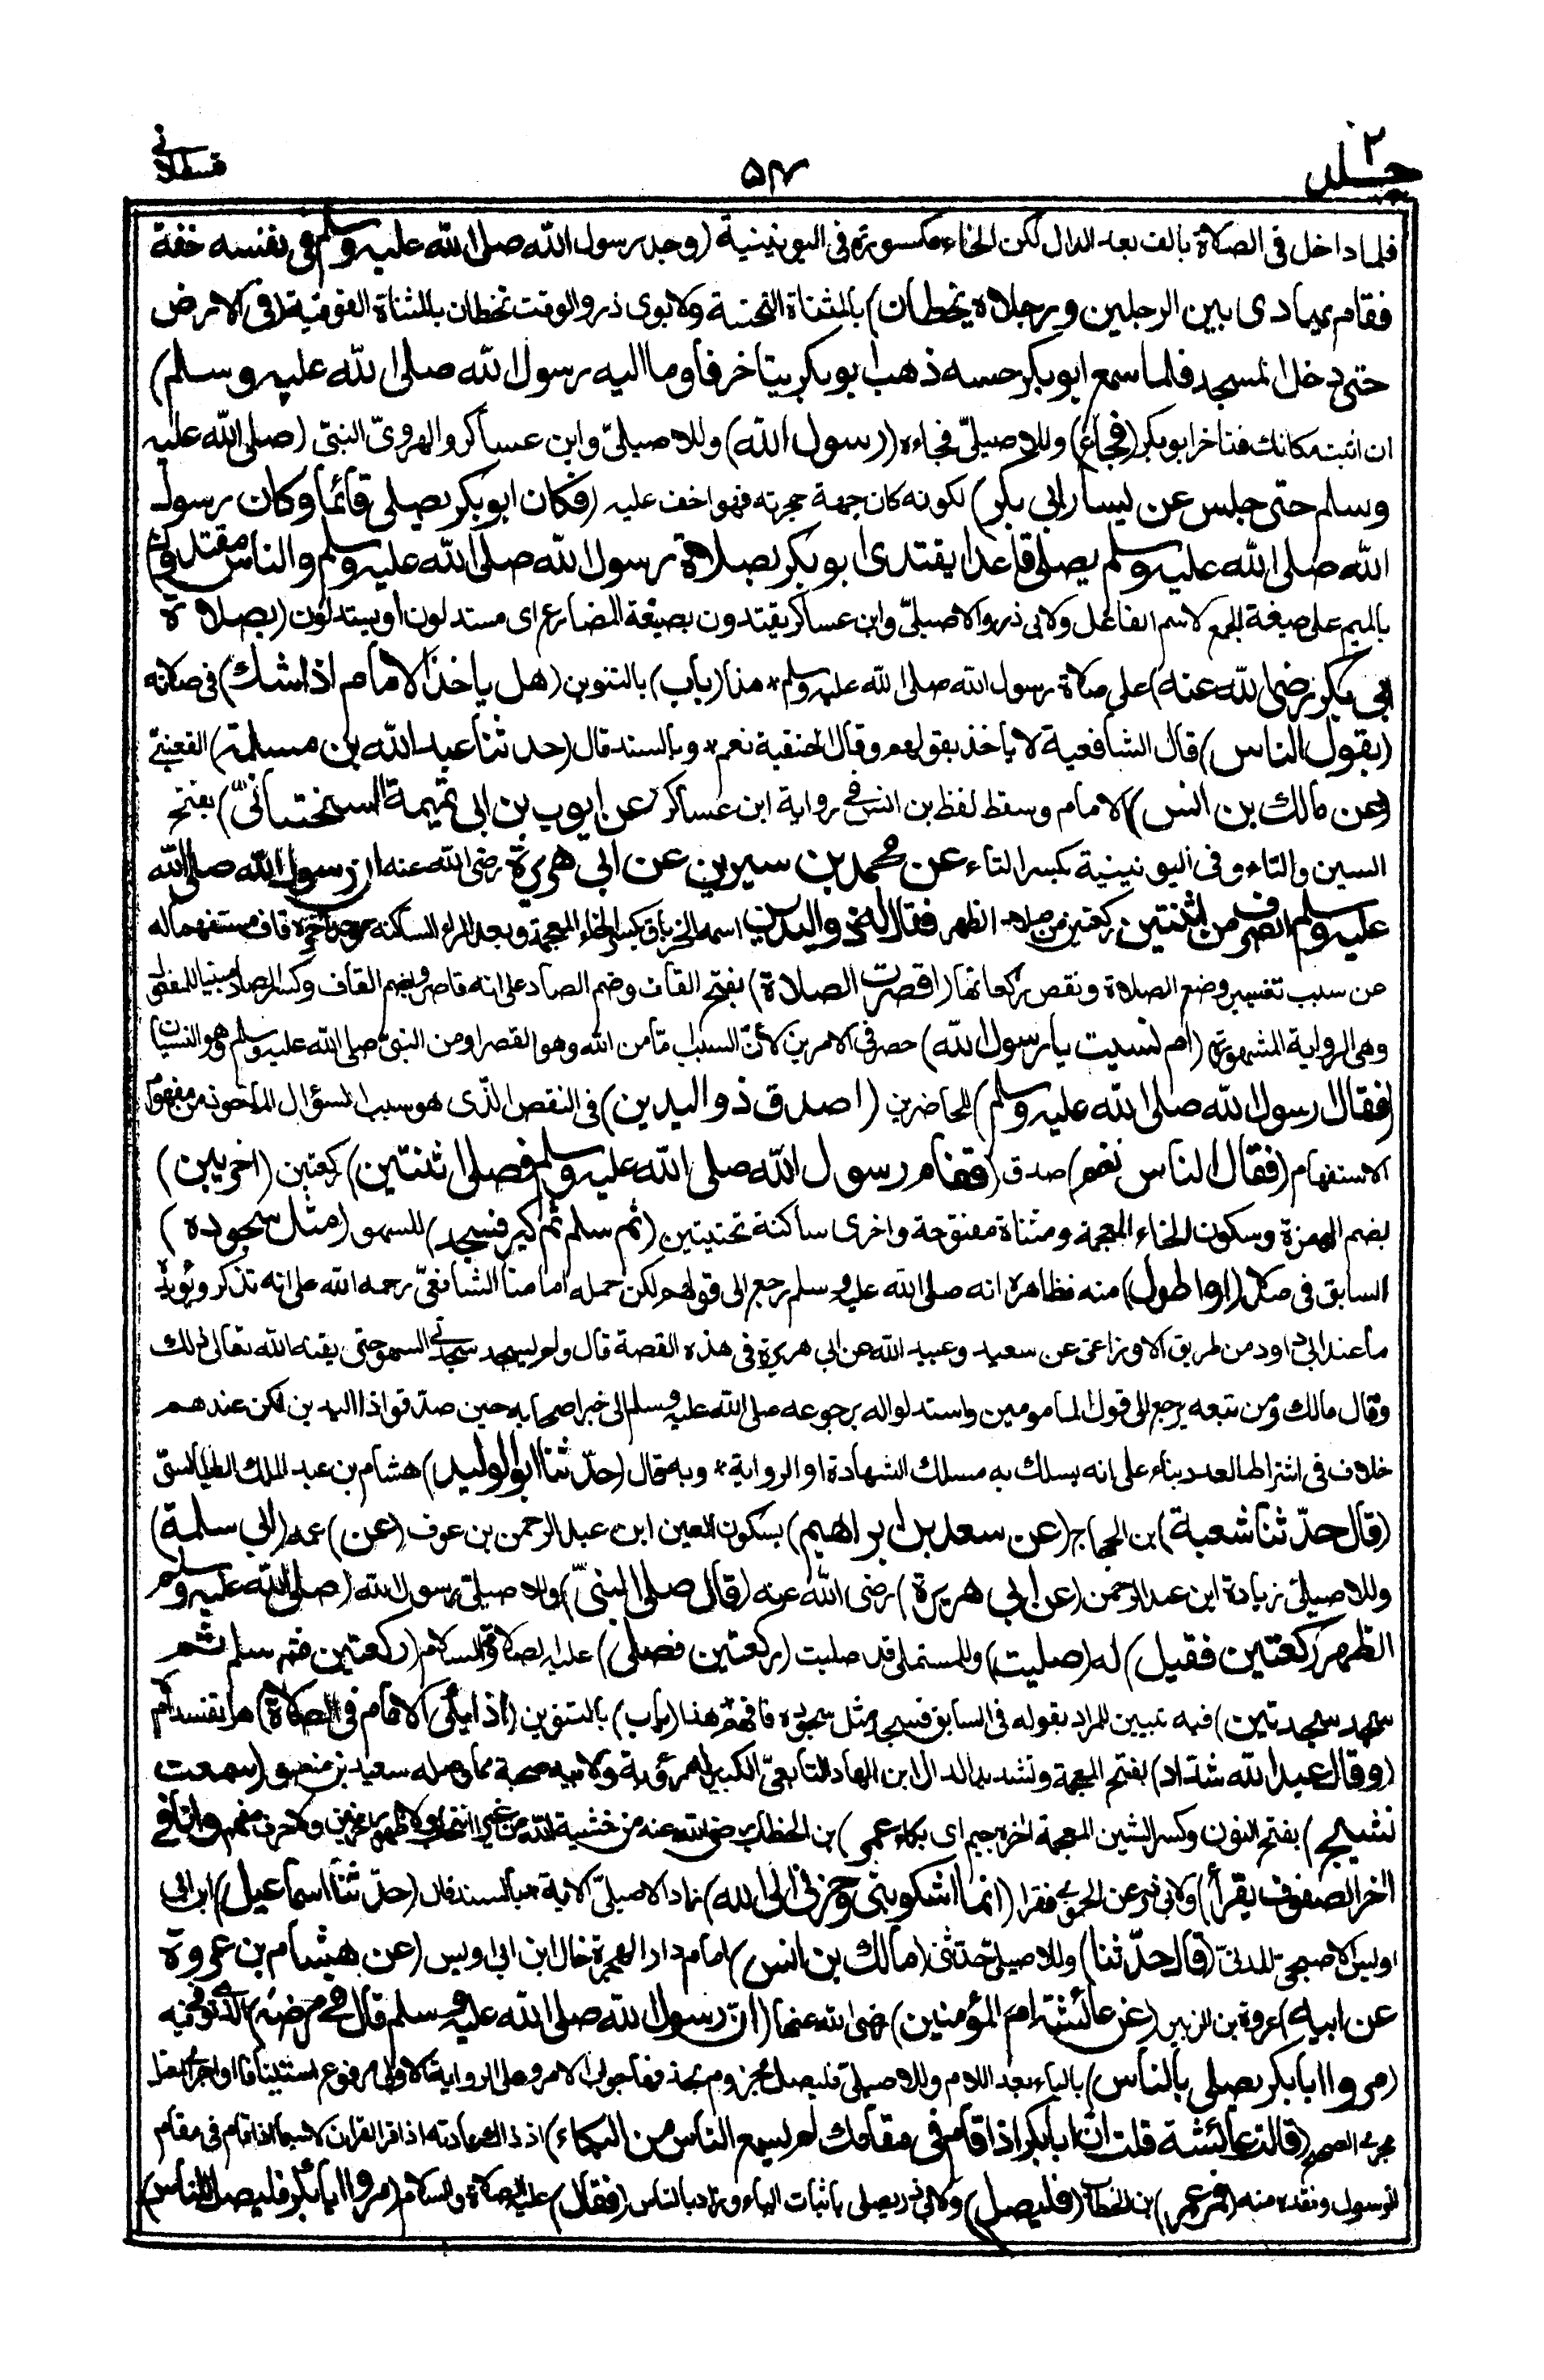 جلد ٢
٥٧
قسطلانى
فلما داخل فى الصلاة بالف بعد الدال لكن الخاء مكسورة فى اليونينية (وجد رسول الله صلى الله عليه وسلم فى نفسه خفة
فقام يهادى بين الرجلين ورجلاه يخطان) بالمثناة التحتية ولابوى ذر والوقت تخطان بالمثناة الفوقية (فى الارض
حتى دخل المسجد فلما سمع ابو بكر حسه ذهب ابو بكر يتاخر فاوما اليه رسول الله صلى الله عليه وسلم)
ان اثبت مكانك فتاخر ابو بكر (فجاء) وللاصيلىّ فجاءه (رسول الله) وللاصيلىّ وابن عساكر والهروىّ النبىّ (صلى الله عليه
وسلم حتى جلس عن يسار ابى بكر) لكونه كان جهة حجرته فهو اخف عليه (فكان ابو بكر يصلى قائما وكان رسول
الله صلى الله عليه وسلم يصلى قاعدا يقتدى ابو بكر بصلاة رسول الله صلى الله عليه وسلم والناس مقتدون)
بالميم على صيغة الجمع لاسم الفاعل ولابى ذر والاصيلىّ وابن عساكر يقتدون بصيغة المضارع اى مستدلون او يستدلون (بصلاة
ابى بكر رضى الله عنه) على صلاة رسول الله صلى الله عليه وسلم * هذا (باب) بالتنوين (هل ياخذ الامام اذا شك) فى صلاته
(بقول الناس) قال الشافعية لا ياخذ بقولهم وقال الحنفية نعم * وبالسند قال (حدثنا عبد الله بن مسلمة) القعنبىّ
(عن مالك بن انس) الامام وسقط لفظ بن انس فى رواية ابن عساكر (عن ايوب بن ابى تميمة السختيانىّ) بفتح
السين والتاء وفى اليونينية بكسر التاء عن محمد بن سيرين عن ابى هريرة رضى الله عنه ان رسول الله صلى الله
عليه وسلم انصرف من اثنتين ركعتين من صلاة الظهر فقال له ذو اليدين اسمه الخرباق بكسر الخاء المعجمة وبعد الراء الساكنة موحدة اخره قاف مستفهما له
عن سبب تغيير وضع الصلاة ونقص ركعاتها (اقصرت الصلاة) بفتح القاف وضم الصاد على انه قاصر وبضم القاف وكسر الصاد مبنيا للمفعول
وهى الرواية المشهورة (ام نسيت يا رسول الله) حصر فى الامرين لأنّ السبب امّا من الله وهو القصر او من النبىّ صلى الله عليه وسلم وهو النسيان
(فقال رسول الله صلى الله عليه وسلم) للحاضرين (اصدق ذو اليدين) فى النقص الذى هو سبب السؤال الماخوذ من مفهوم
الاستفهام (فقال الناس نعم) صدق (فقام رسول الله صلى الله عليه وسلم فصلى اثنتين) ركعتين (اخريين)
بضم الهمزة وسكون الخاء المعجمة ومثناة مفتوحة واخرى ساكنة تحتيتين (ثم سلم ثم كبر فسجد) للسهو (مثل سجوده)
السابق فى صلاته (او اطول) منه فظاهره انه صلى الله عليه وسلم رجع الى قولهم لكن حمله امامنا الشافعىّ رحمه الله على انه تذكر ويؤيده
ما عند ابى داود من طريق الاوزاعى عن سعيد وعبيد الله عن ابى هريرة فى هذه القصة قال ولم يسجد سجدتى السهو حتى يقنه الله تعالى ذلك
وقال مالك ومن تبعه يرجع الى قول المامومين واستدلوا له برجوعه صلى الله عليه وسلم الى خبر اصحابه حين صدقوا ذا اليدين لكن عندهم
خلاف فى اشتراط العدد بناء على انه يسلك به مسلك الشهادة او الرواية * وبه قال (حدّثنا ابو الوليد) هشام بن عبد الملك الطيالسىّ
(قال حدّثنا شعبة) بن الحجاج (عن سعد بن ابراهيم) بسكون العين ابن عبد الرحمن بن عوف (عن) عمه (ابى سلمة)
وللاصيلىّ زيادة ابن عبد الرحمن (عن ابى هريرة) رضى الله عنه (قال صلى النبىّ) وللاصيلىّ رسول الله (صلى الله عليه وسلم
الظهر ركعتين فقيل) له (صليت) وللمستملى قد صليت (ركعتين فصلى) عليه الصلاة والسلام (ركعتين ثم سلم ثم
سجد سجدتين) فيه تبيين للمراد بقوله فى السابق فسجد مثل سجوده فافهم * هذا (باب) بالتنوين (اذا بكى الامام فى الصلاة) هل تفسد ام لا
(وقال عبد الله شدّاد) بفتح المعجمة وتشديد الدال ابن الهاد التابعىّ الكبير له رؤية ولابيه صحبة مما وصله سعيد بن منصور (سمعت
نشيج) بفتح النون وكسر الشين المعجمة اخره جيم اى بكاء (عمر) بن الخطاب رضى الله عنه من خشية الله من غير انتحاب ولا ظهور حرفين ولا حرف مفهم وانا فى
اخر الصفوف يقرأ) ولابى ذر عن الحموى فقرا (انما اشكو بثى وحزنى الى الله) زاد الاصيلىّ الاية * وبالسند قال (حدّثنا اسماعيل) ابن ابى
اويس الاصبحىّ المدنىّ (قال حدّثنا) وللاصيلىّ حدثنى (مالك بن انس) امام دار الهجرة خال ابن ابى اويس (عن هشام بن عروة
عن ابيه) عروة بن الزبير (عن عائشة ام المؤمنين) رضى الله عنها (انّ رسول الله صلى الله عليه وسلم قال فى مرضه) الذى توفى فيه
(مروا ابا بكر يصلى بالناس) بالياء بعد اللام وللاصيلىّ فليصل مجزوم بحذفها جواب الامر وعلى الرواية الاولى مرفوع استئنافا او اجرى المعتل
مجرى الصحيح (قالت عائشة قلت انّ ابا بكر اذا قام فى مقامك لم يسمع الناس من البكاء) اذ ذاك عادته اذا قرا القران لا سيما اذا قام فى مقام
الرسول وفقده منه (فمر عمر) بن الخطاب (فليصل) ولابى ذر يصلى باثبات الياء وزاد بالناس (فقال) عليه الصلاة والسلام (مروا ابا بكر فليصل للناس)